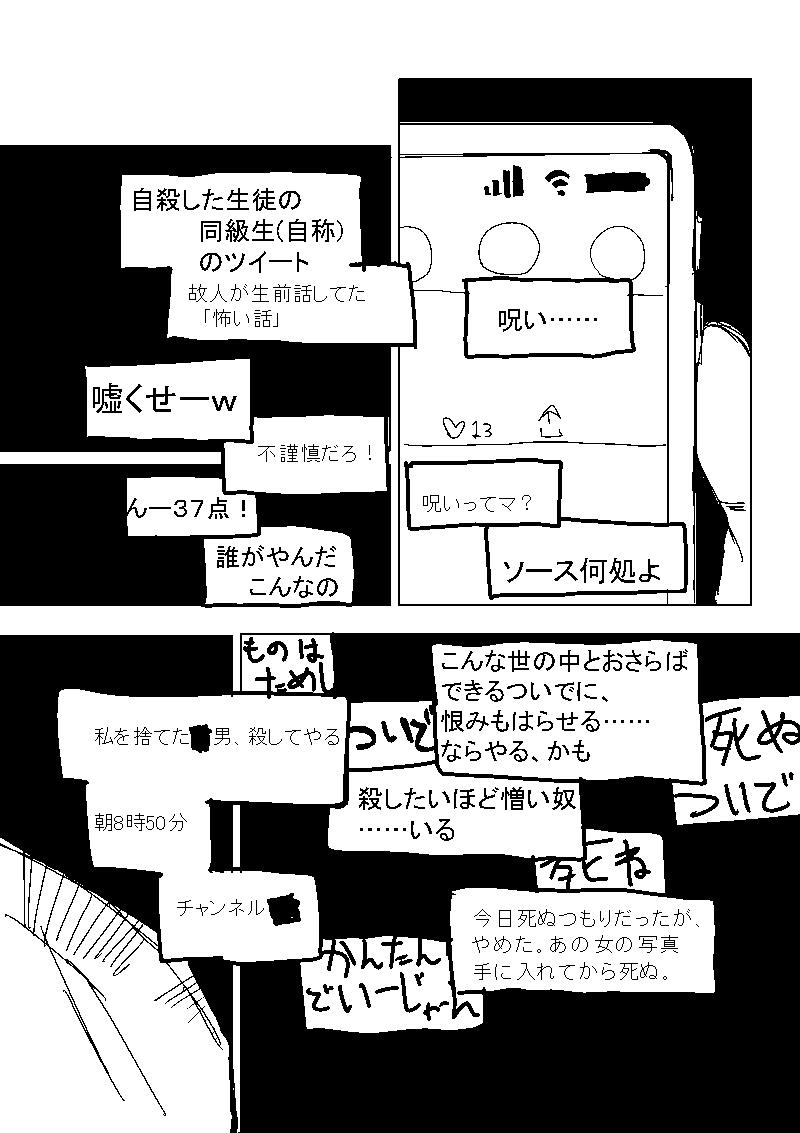 呪い……
13
呪いってマ？
ソース何処よ
自殺した生徒の
同級生(自称)
のツイート
故人が生前話してた
「怖い話」
嘘くせーｗ
不謹慎だろ！
んー37点！
誰がやんだ
こんなの
死ぬ
ついで
こんな世の中とおさらば
できるついでに、
恨みもはらせる……
ならやる、かも
ついで
殺したいほど憎い奴
……いる
死ね
今日死ぬつもりだったが、
やめた。あの女の写真
手に入れてから死ぬ。
かんたん
でいーじゃん
ものは
ためし
私を捨てた男、殺してやる
朝8時50分
チャンネル